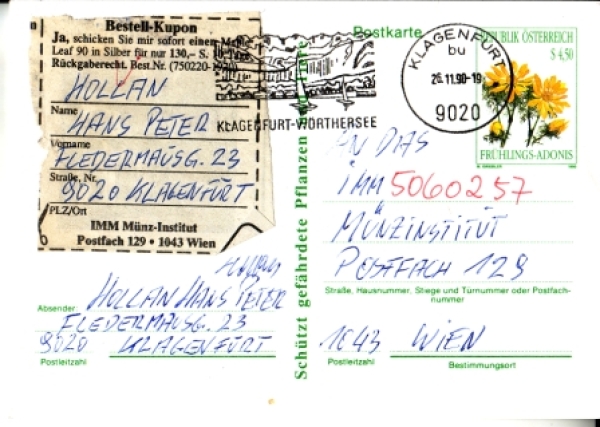 Bestell-Kupon
Ja, schicken Sie mir sofort einen Maple
Leaf 90 in Silber für nur 130,– S. 10 Tage
Rückgaberecht. Best.Nr. (750220-1920)
HOLLAN
Name
HANS PETER
Vorname
FLEDERMAUSG. 23
Straße, Nr.
9020 KLAGENFURT
PLZ/Ort
IMM Münz-Institut
Postfach 129 • 1043 Wien
KLAGENFURT-WÖRTHERSEE
Postkarte
KLAGENFURT
bu
26.11.90-19
9020
REPUBLIK ÖSTERREICH
S 4,50
FRÜHLINGS-ADONIS
Schützt gefährdete Pflanzen und Tiere
AN DAS
IMM 5060257
MÜNZINSTITUT
POSTFACH 129
Straße, Hausnummer, Stiege und Türnummer oder Postfach-
nummer
1043 WIEN
Postleitzahl
Bestimmungsort
Absender:
HOLLAN HANS PETER
FLEDERMAUSG. 23
9020 KLAGENFURT
Postleitzahl